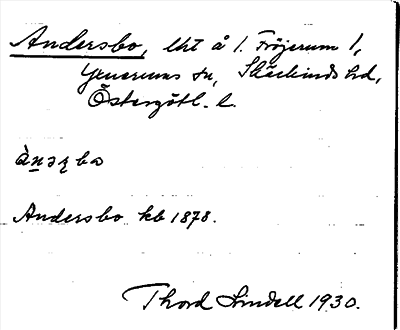 Andersbo, lht å 1. Fröjerum 1,
Yxnerums sn, Skärkinds hd,
Östergötl. l.
Andersbo kb 1878.
Thord Lindell 1930.